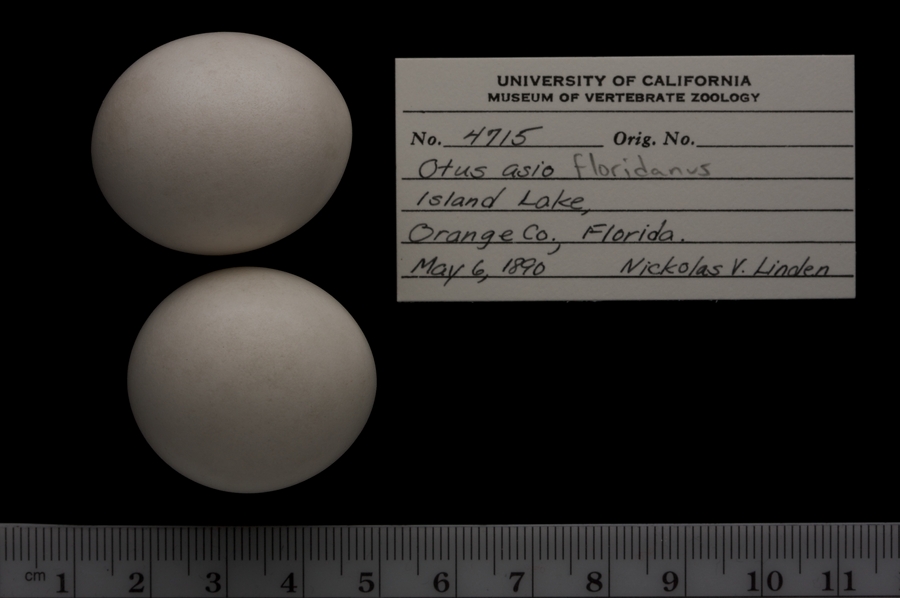 UNIVERSITY OF CALIFORNIA
MUSEUM OF VERTEBRATE ZOOLOGY
No. 4715 Orig. No.
Otus asio floridanus
Island Lake,
Orange Co., Florida.
May 6, 1890 Nickolas V. Linden
cm 1 2 3 4 5 6 7 8 9 10 11